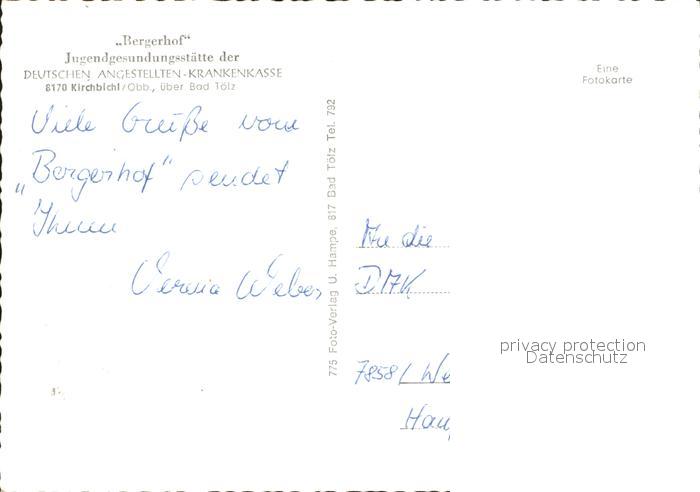 „Bergerhof“
Jugendgesundungsstätte der
DEUTSCHEN ANGESTELLTEN-KRANKENKASSE
8170 Kirchbichl/Obb., über Bad Tölz
Viele Grüße vom
„Bergerhof“ sendet
Ihnen
Weber
775 Foto-Verlag U. Hampe, 817 Bad Tölz Tel. 792
Eine
Fotokarte
An die
DAK
7858 / We
Hau
privacy protection
Datenschutz